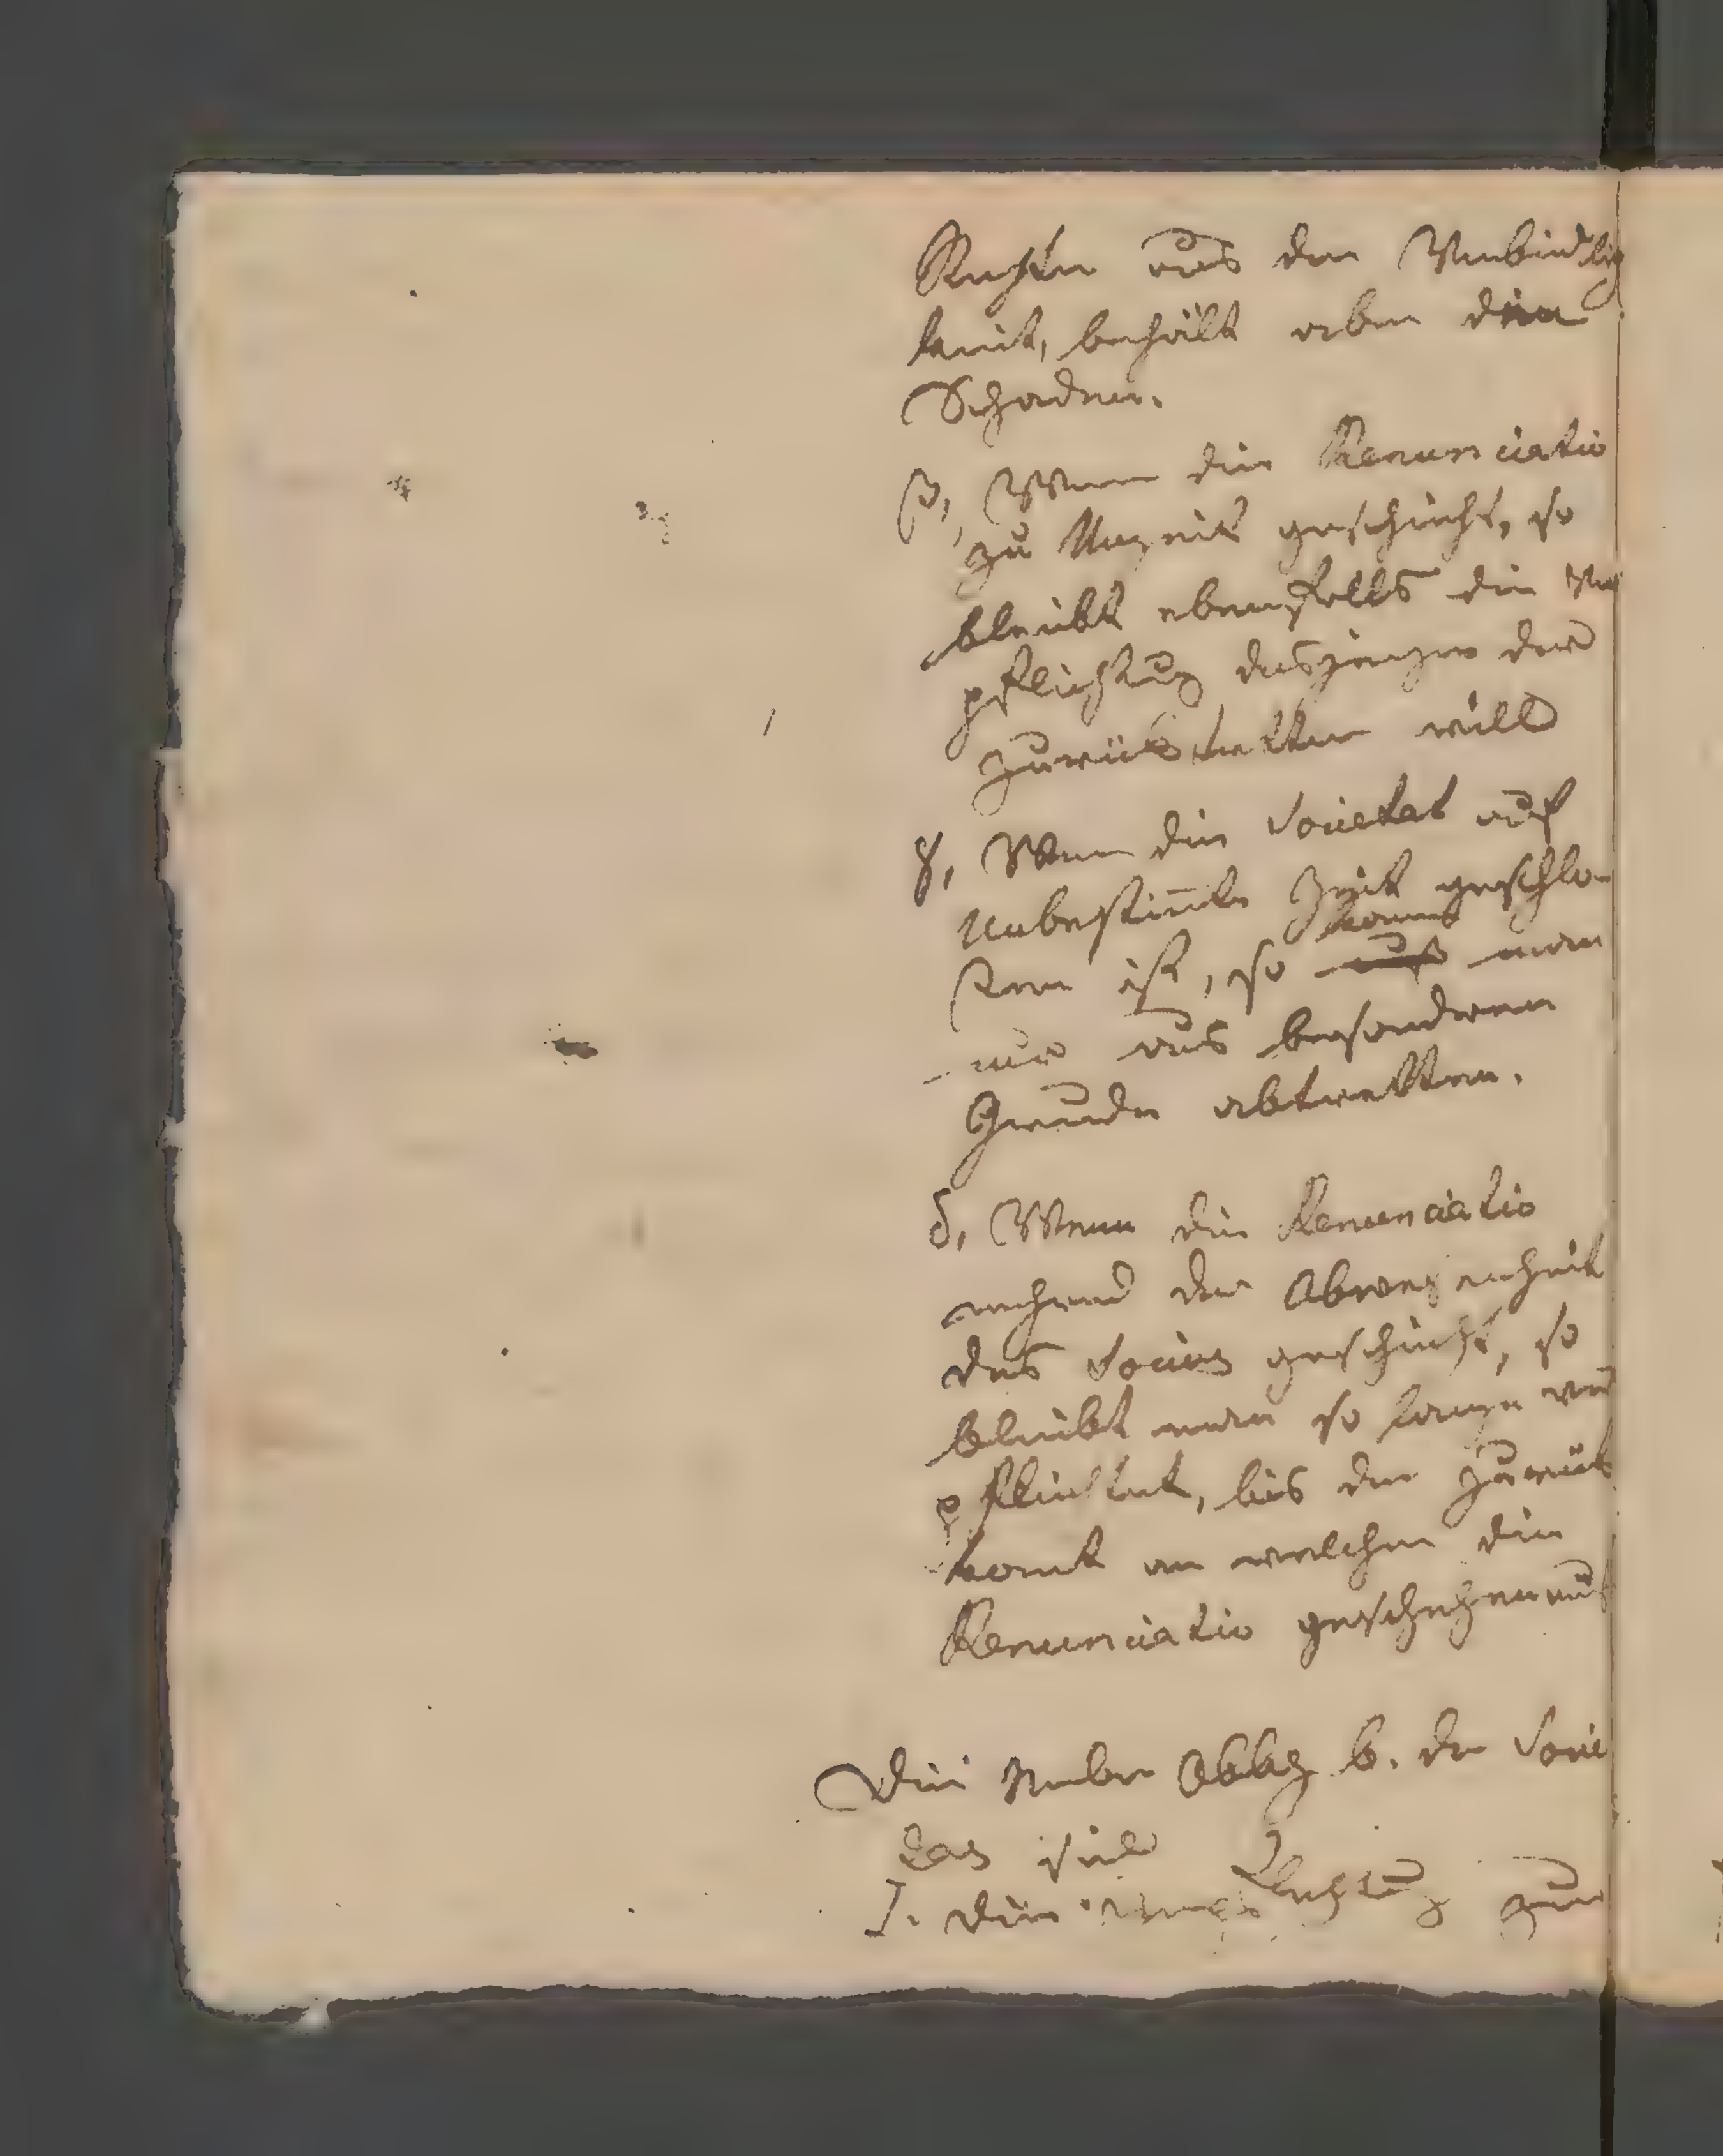 Rechte aus der Verbindlich
keit, behält aber den
Schaden.
β, Wenn die Renunciatio
zu Unzeit geschieht, so
bleibt ebenfalls die Ver
pflichtung desjenigen der
zurücktretten will
γ, Wenn die Societat auf
unbestim̅te Zeit geschlo-
ßen ist, so kann man
nur aus besondren
Grunde abtretten.
δ, Wenn die Renunciatio
wehrend der Abwesenheit
des Socius geschieht, so
bleibt man so lange ver
pflichtet, bis der zurük
komt an welchen die
Renunciatio geschehen muß
Die Neben Obbg b. der Socie
tas sind
I. die Verpflichtung zum